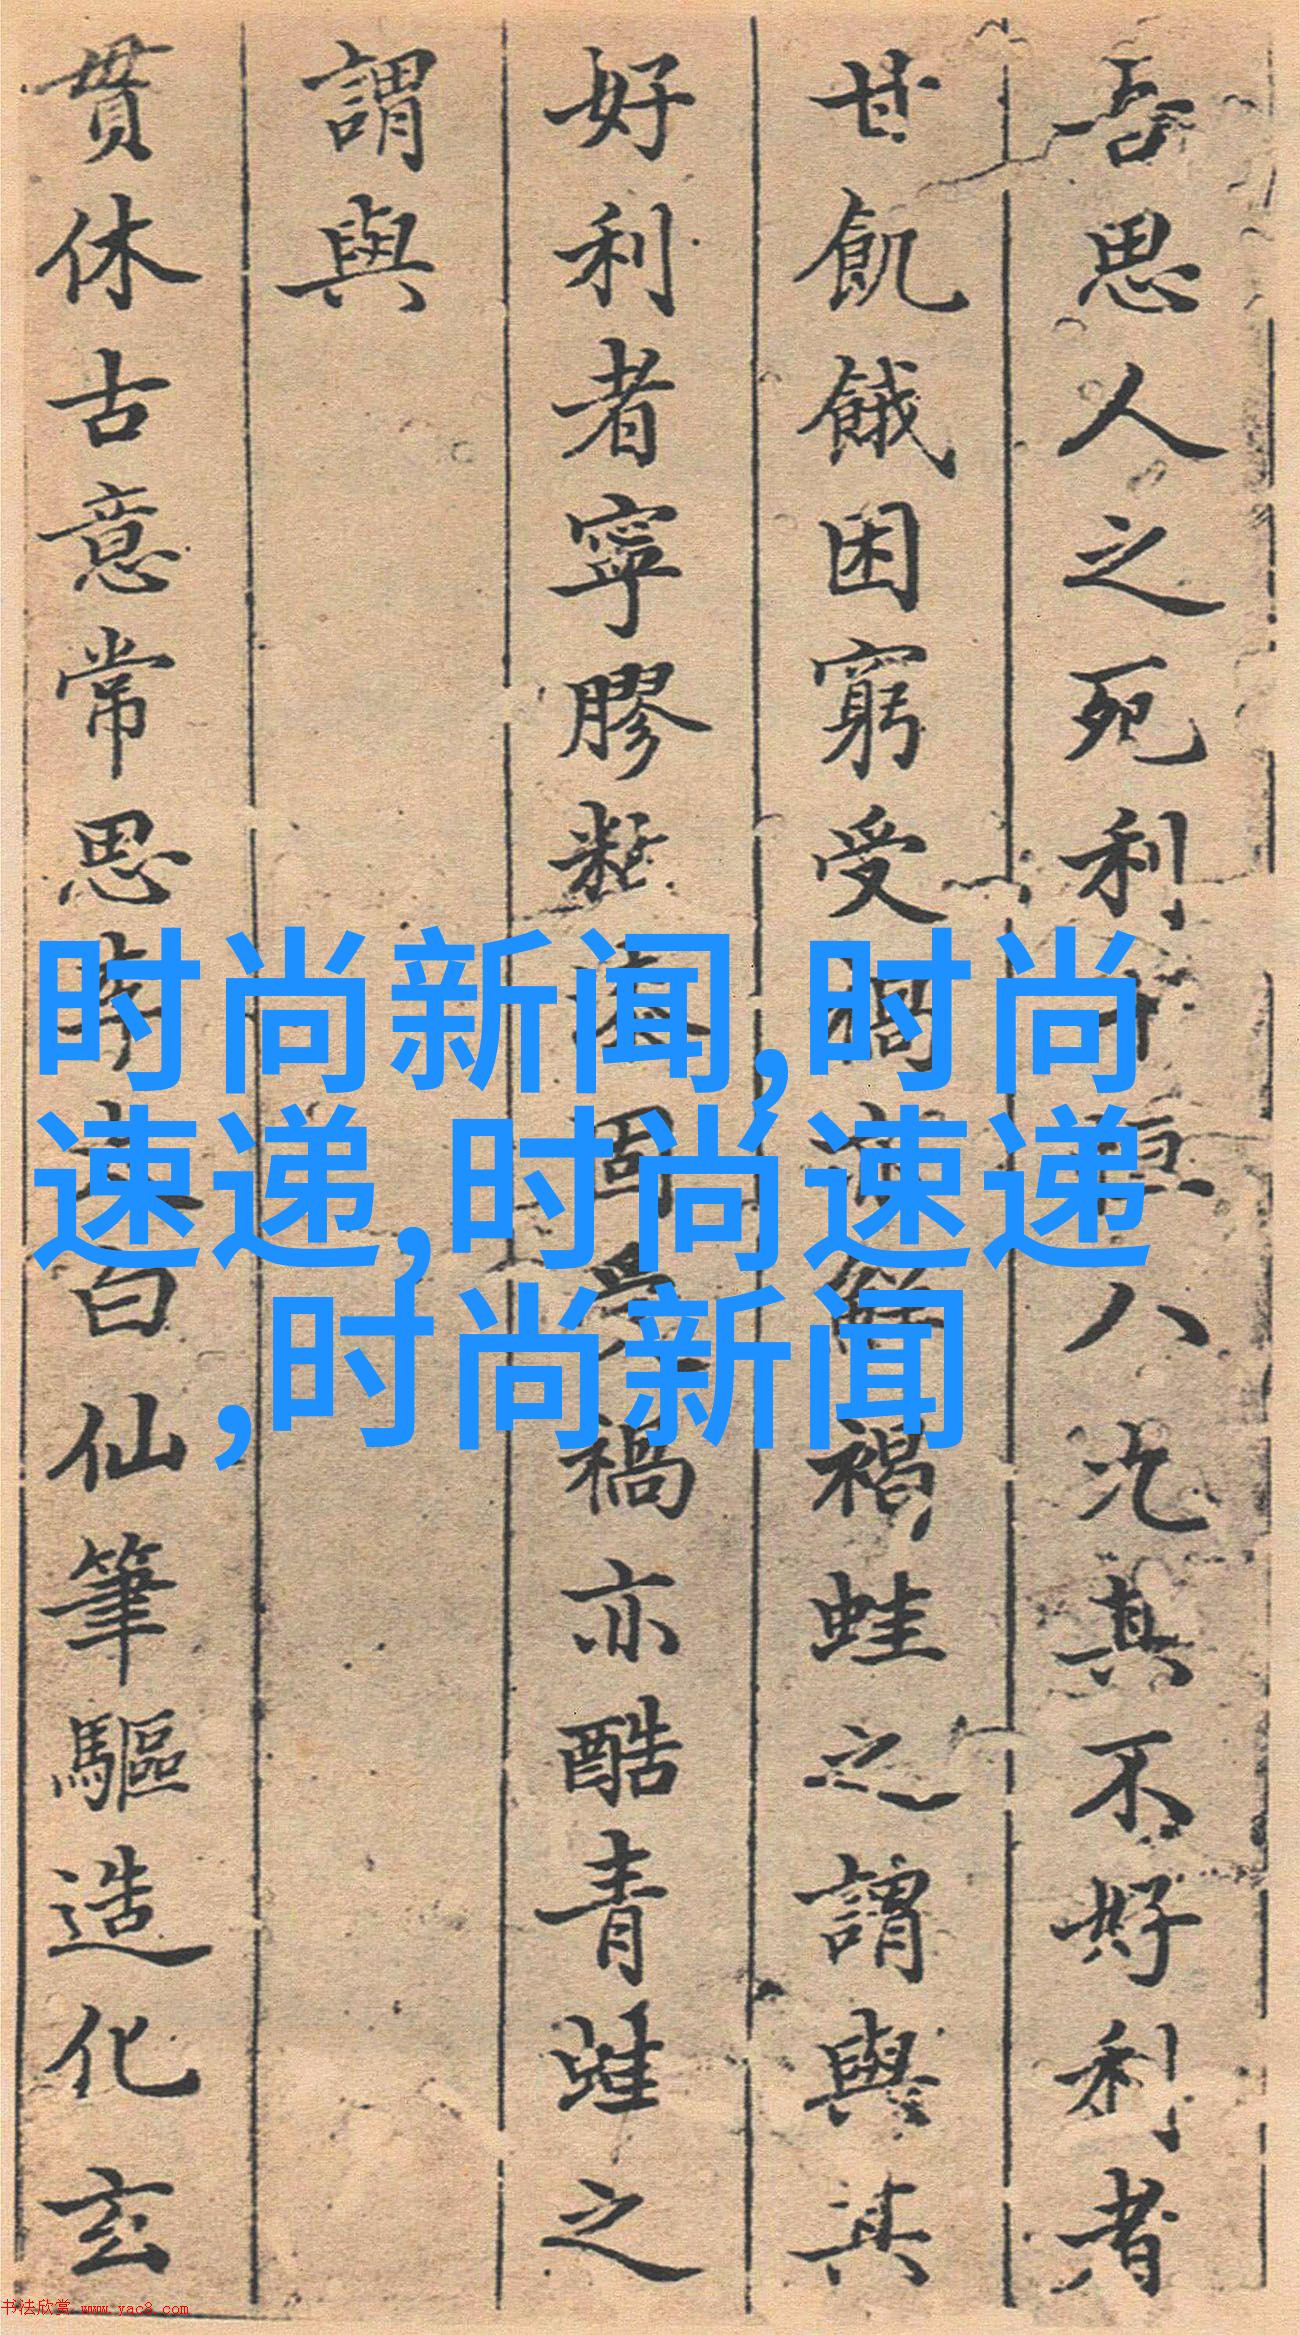 吾思人之死利十恒八况其不好利者
甘飢餓困窮受禍亦鮮褐蛙之謂與其
好利者寧膠固受禍亦酷青蛙之
謂與
貫休古意常思李太白仙筆驅造化玄
时尚新闻,时尚
速递,时尚速递
,时尚新闻
书法欣赏 www.yac8.com